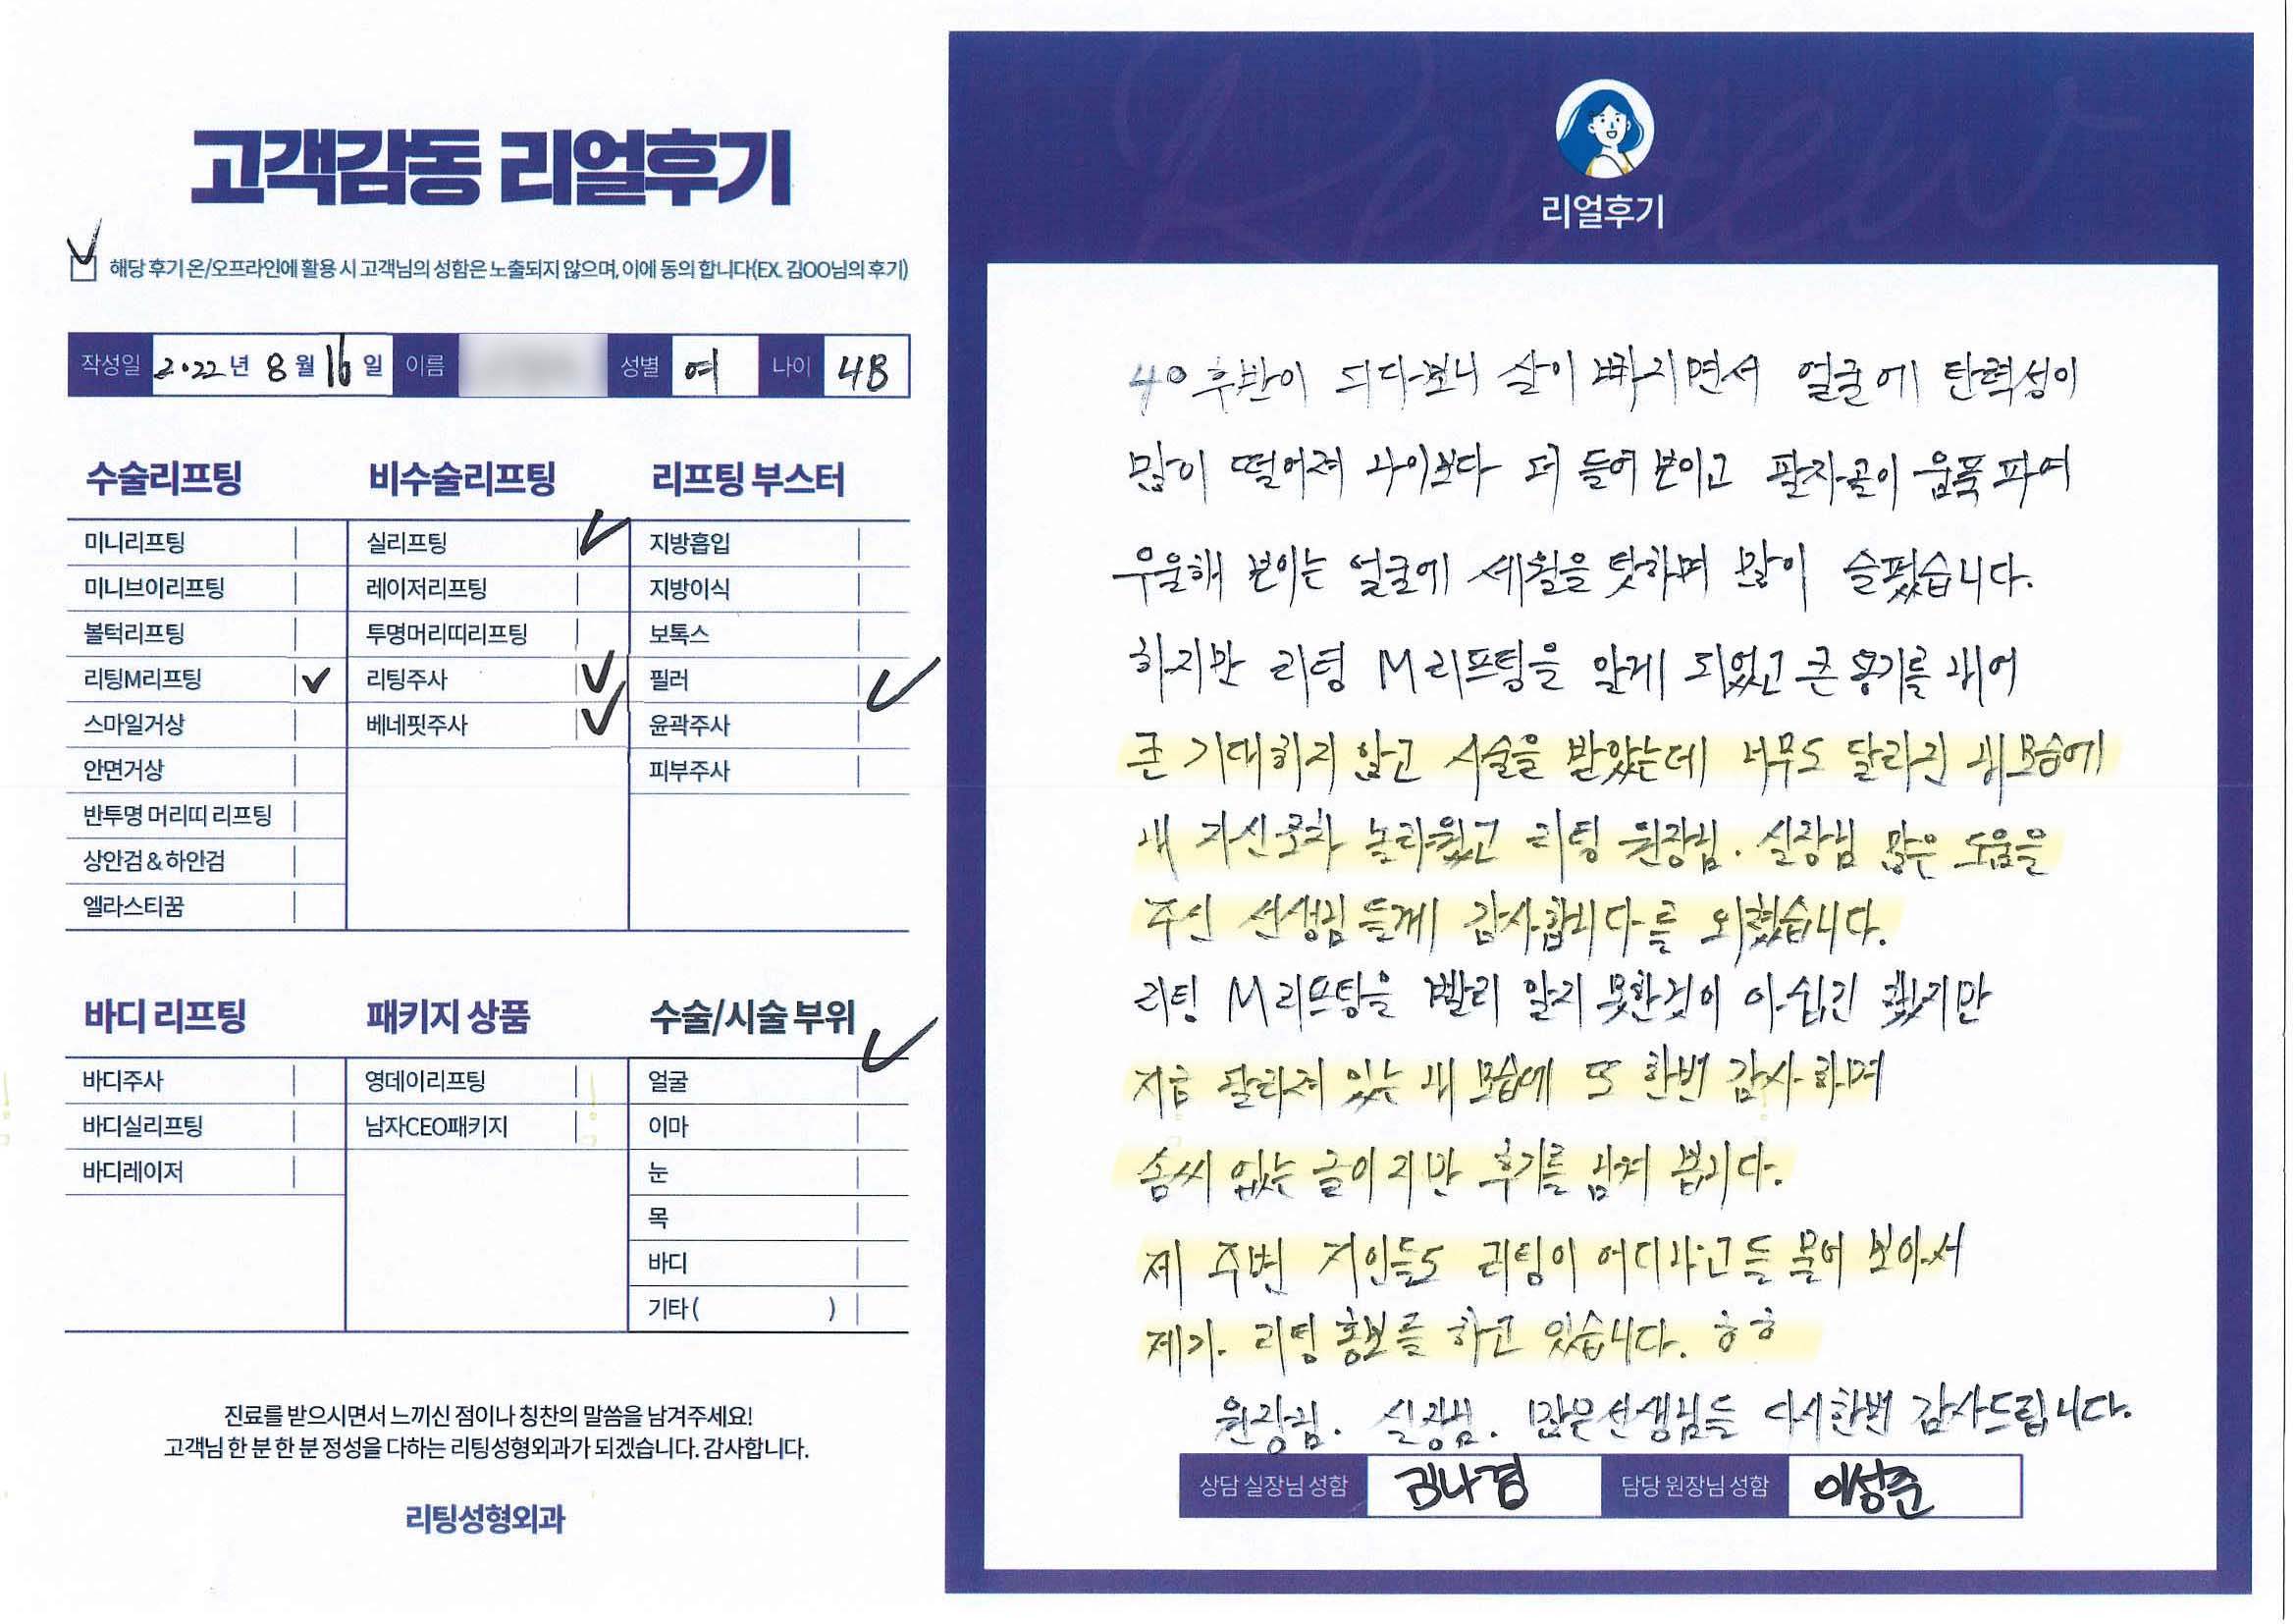 고객감동 리얼후기
해당 후기 온/오프라인에 활용 시 고객님의 성함은 노출되지 않으며, 이에 동의 합니다(EX. 김OO님의 후기)
작성일 2022년 8월 16일 이름 성별 여 나이 48
수술리프팅
미니리프팅
미니브이리프팅
볼턱리프팅
리팅M리프팅
스마일거상
안면거상
반투명 머리띠 리프팅
상안검 & 하안검
엘라스티꿈
비수술리프팅
실리프팅
레이저리프팅
투명머리띠리프팅
리팅주사
베네핏주사
리프팅 부스터
지방흡입
지방이식
보톡스
필러
윤곽주사
피부주사
바디 리프팅
바디주사
바디실리프팅
바디레이저
패키지 상품
영데이리프팅
남자CEO패키지
수술/시술 부위
얼굴
이마
눈
목
바디
기타 ( )
진료를 받으시면서 느끼신 점이나 칭찬의 말씀을 남겨주세요!
고객님 한 분 한 분 정성을 다하는 리팅성형외과가 되겠습니다. 감사합니다.
리팅성형외과
Review
리얼후기
40 후반이 되다보니 살이 빠지면서 얼굴에 탄력성이
많이 떨어져 나이보다 더 들어 보이고 팔자골이 움푹 파여
우울해 보이는 얼굴에 세월을 탓하며 많이 슬펐습니다.
하지만 리팅 M리프팅을 알게 되었고 큰 용기를 내어
큰 기대하지 않고 시술을 받았는데 너무도 달라진 내 모습에
내 자신조차 놀라웠고 리팅 원장님. 실장님 많은 도움을
주신 선생님들께 감사합니다를 외쳤습니다.
리팅 M리프팅을 빨리 알지 못한것이 아쉽긴 했지만
지금 달라져 있는 내 모습에 또 한번 감사하며
솜씨 없는 글이지만 후기를 남겨 봅니다.
제 주변 지인들도 리팅이 어디냐고들 물어 보아서
제가. 리팅 홍보를 하고 있습니다. ㅎㅎ
원장님. 실장님. 많은선생님들 다시한번 감사드립니다.
상담 실장님 성함 김나경 담당 원장님 성함 이상준